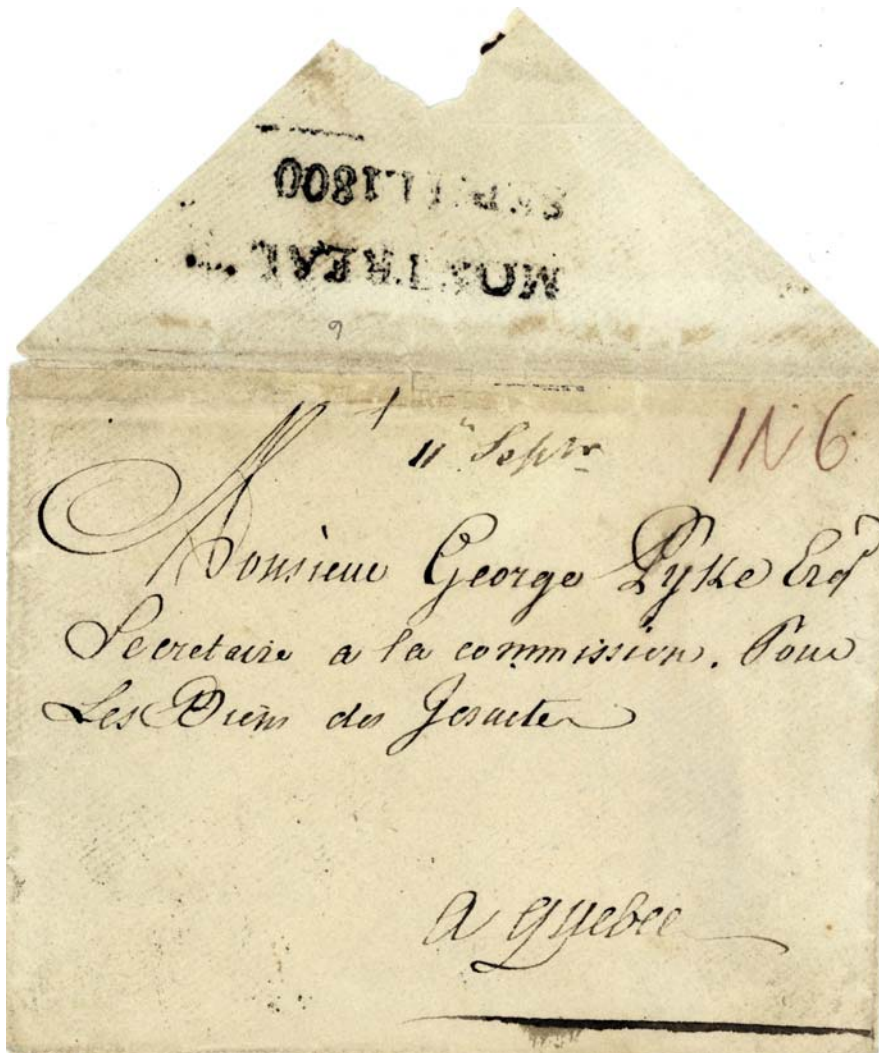 MONTREAL
SEP: 11. 1800
11 Septr
1N6
Monsieur George Pyke Esqr
Secretaire a la commission. Pour
Les Biens des Jesuites
a Quebec